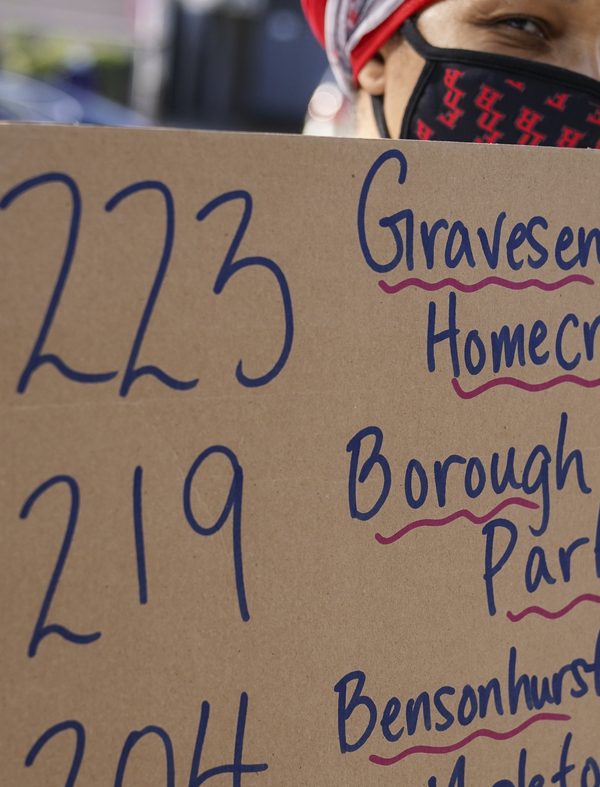 223 Gravesen
Homecr
219 Borough
Park
Bensonhurst
204